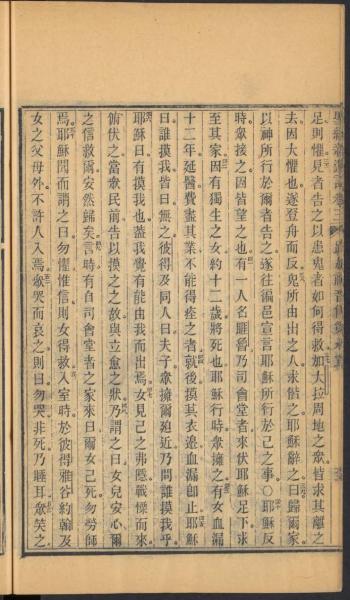 足則懼見者告之以患鬼者如何得救加大拉周地之眾皆求其離之
去因大懼也遂登舟而反鬼所由出之人求偕之耶穌辭之曰歸爾家
以神所行於爾者告之遂往徧邑宣言耶穌所行於己之事○耶穌反
時眾接之因皆望之也有一人名厓魯乃司會堂者來伏耶穌足下求
至其家因有獨生之女約十二歲將死也耶穌行時眾擁之有女血漏
十二年延醫費盡其業不能得痊之者就後摸其衣邊血漏卽止耶穌
曰誰摸我皆曰無之彼得及同人曰夫子眾擁爾廹近乃問誰摸我乎
耶穌曰有摸我也蓋我覺有能由我而出焉女見己之弗隱戰慄而來
俯伏之當眾民前告以摸之之故與立愈之狀乃謂之曰女兒安心爾
之信救爾安然歸矣言時有自司會堂者之家來曰爾女己死勿勞師
焉耶穌聞而謂之曰勿懼惟信則女得救入室時於彼得雅谷約翰及
女之父母外不許人入焉眾哭而哀之則曰勿哭非死乃睡耳眾笑之